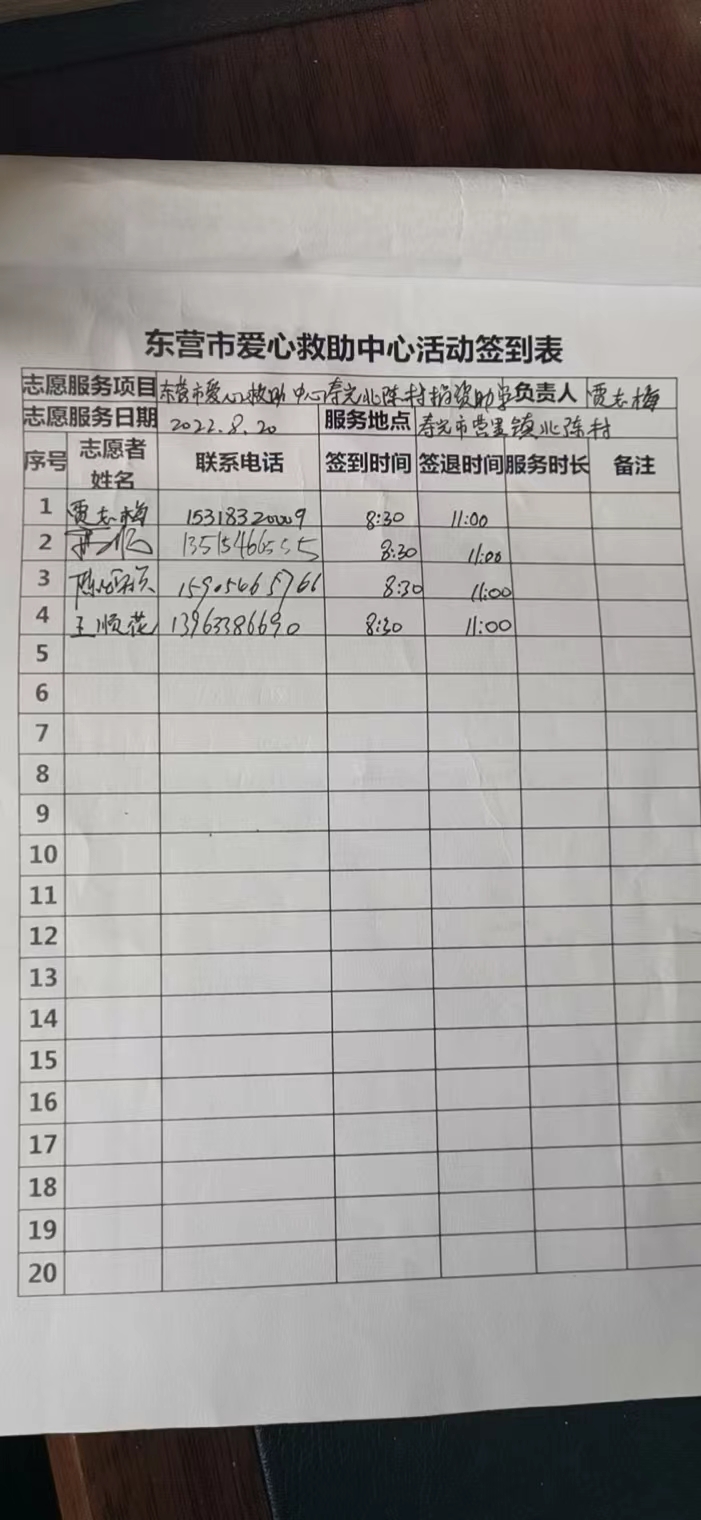 东营市爱心救助中心活动签到表
志愿服务项目 东营市爱心救助中心寿光北陈村捐资助学 负责人 贾志梅
志愿服务日期 2022.8.20 服务地点 寿光市营里镇北陈村
序号 志愿者姓名 联系电话 签到时间 签退时间 服务时长 备注
1 贾志梅 15318320009 8:30 11:00
2 13515466555 8:30 11:00
3 15905465766 8:30 11:00
4 王顺花 13963386690 8:30 11:00
5
6
7
8
9
10
11
12
13
14
15
16
17
18
19
20